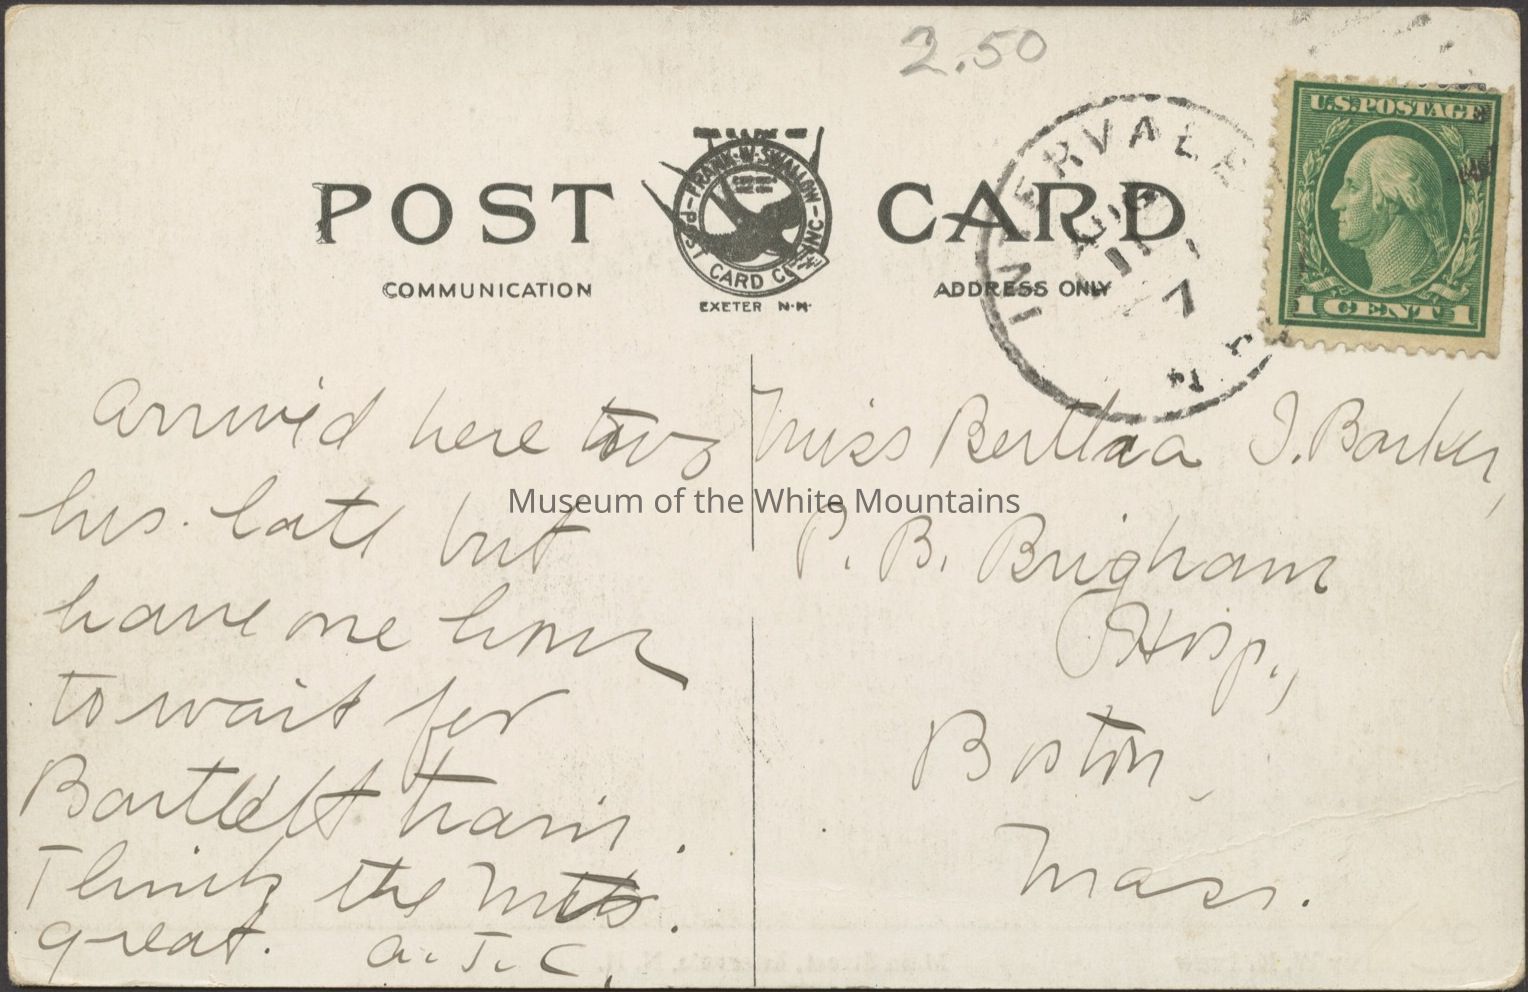 2.50
POST CARD
FRANK·W·SWALLOW
POST CARD CO. INC
EXETER N.H.
COMMUNICATION
ADDRESS ONLY
INTERVALE
AUG
11
7
U.S.POSTAGE
1 CENT 1
Arrived here two
hrs. late but
have one hour
to wait for
Bartlett train.
Think the Mts.
great. A. T. C.
Miss Bertha I. Barker,
P. B. Brigham
Hosp.,
Boston,
Mass.
Museum of the White Mountains